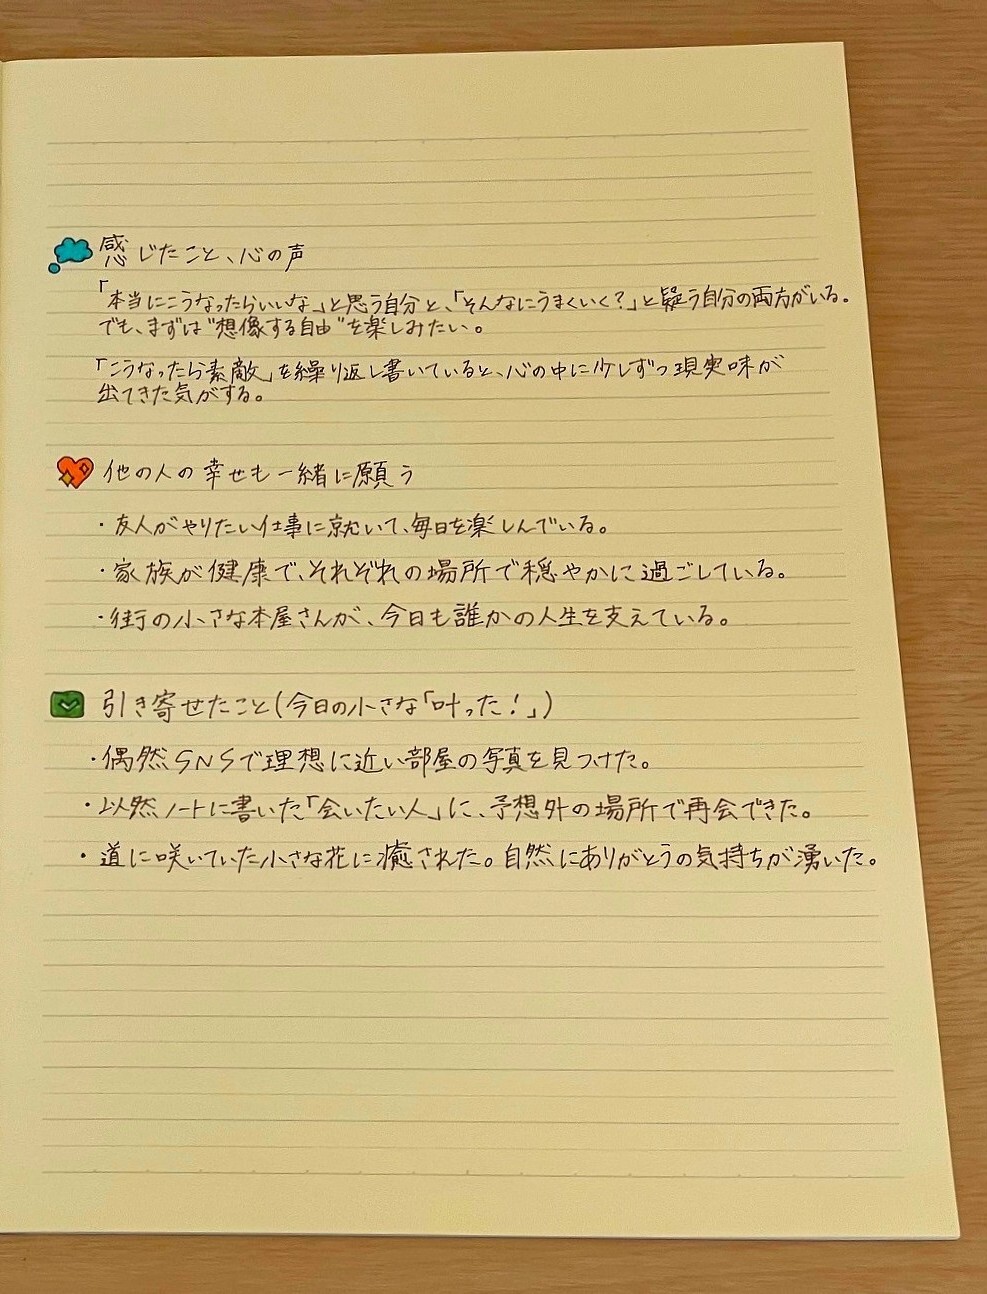 感じたこと、心の声
「本当にこうなったらいいな」と思う自分と、「そんなにうまくいく?」と疑う自分の両方がいる。
でも、まずは"想像する自由"を楽しみたい。
「こうなったら素敵」を繰り返し書いていると、心の中に少しずつ現実味が
出てきた気がする。
他の人の幸せも一緒に願う
・友人がやりたい仕事に就いて、毎日を楽しんでいる。
・家族が健康で、それぞれの場所で穏やかに過ごしている。
・街の小さな本屋さんが、今日も誰かの人生を支えている。
引き寄せたこと(今日の小さな「叶った!」)
・偶然SNSで理想に近い部屋の写真を見つけた。
・以然ノートに書いた「会いたい人」に、予想外の場所で再会できた。
・道に咲いていた小さな花に癒された。自然にありがとうの気持ちが湧いた。